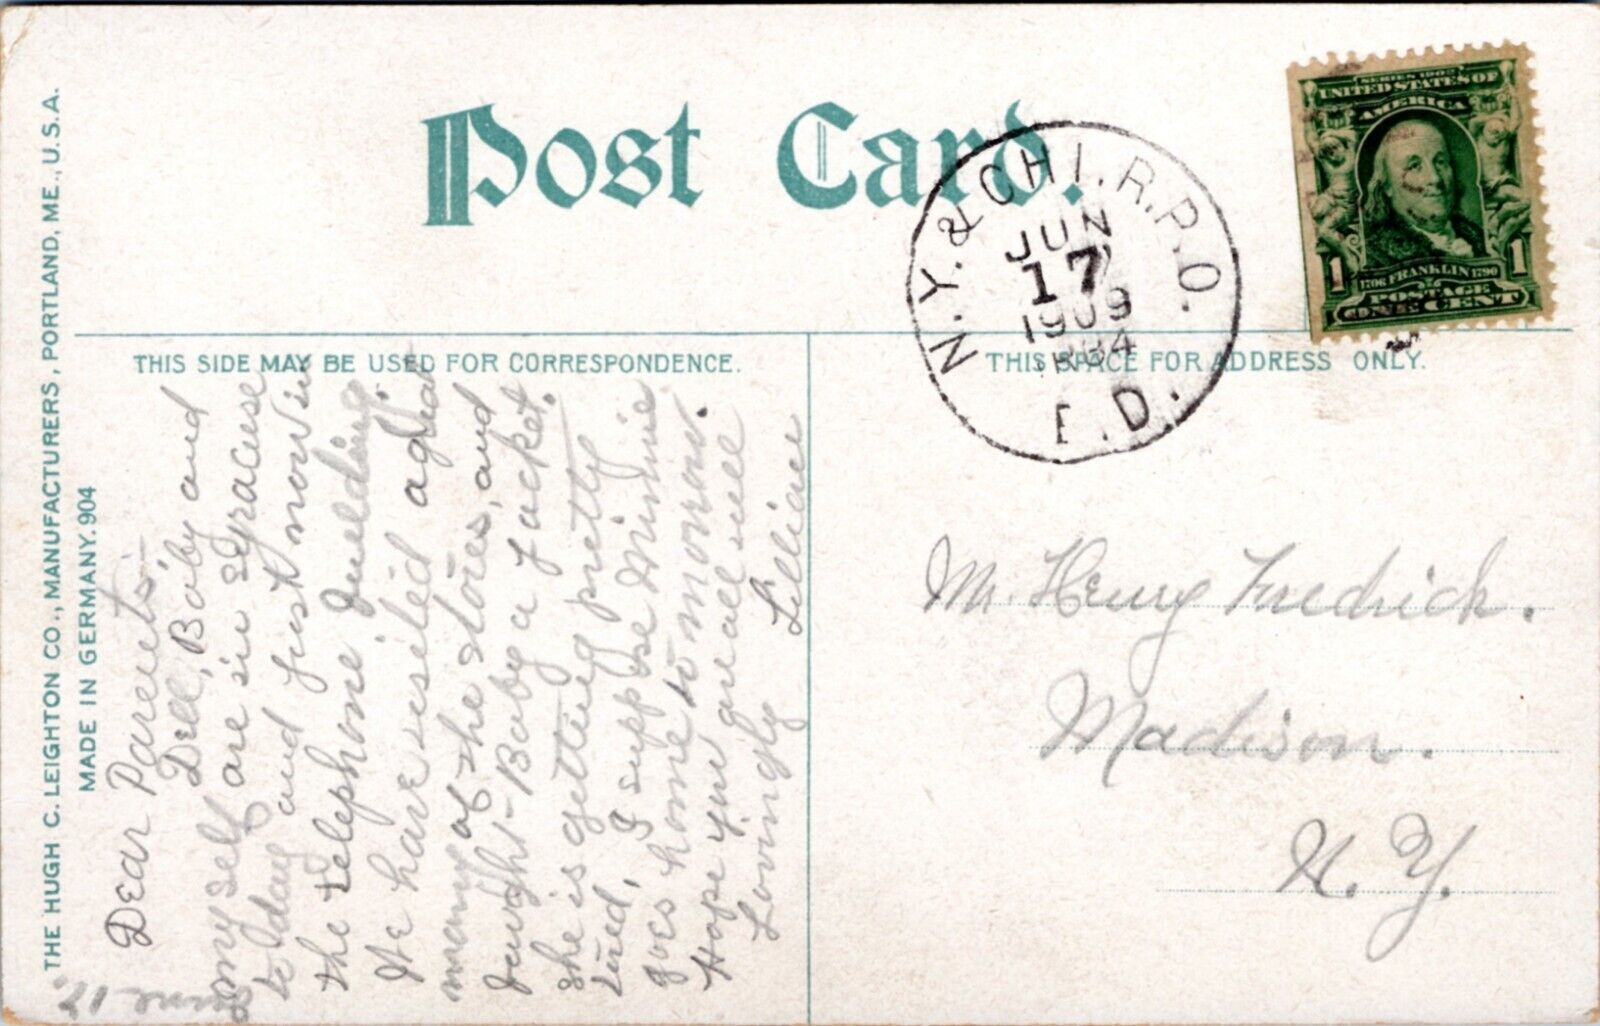 Post Card.
THIS SIDE MAY BE USED FOR CORRESPONDENCE.
THIS SPACE FOR ADDRESS ONLY.
THE HUGH C. LEIGHTON CO., MANUFACTURERS, PORTLAND, ME., U.S.A.
MADE IN GERMANY. 904
N.Y. & CHI. R.P.O.
JUN
17
1909
E.D.
SERIES 1902
UNITED STATES OF
AMERICA
1 1706 FRANKLIN 1790 1
POSTAGE
ONE CENT
June 17.
Dear Parents,-
Dell, Baby and
myself are in Syracuse
to day and just now in
the telephone building.
We have visited
many of the stores, and
bought Baby a jacket.
She is getting pretty
tired, I suppose Minnie
goes home to morrow.
Hope you are all well
Lovingly Lillian
Mr. Henry Fredrick.
Madison.
N. Y.